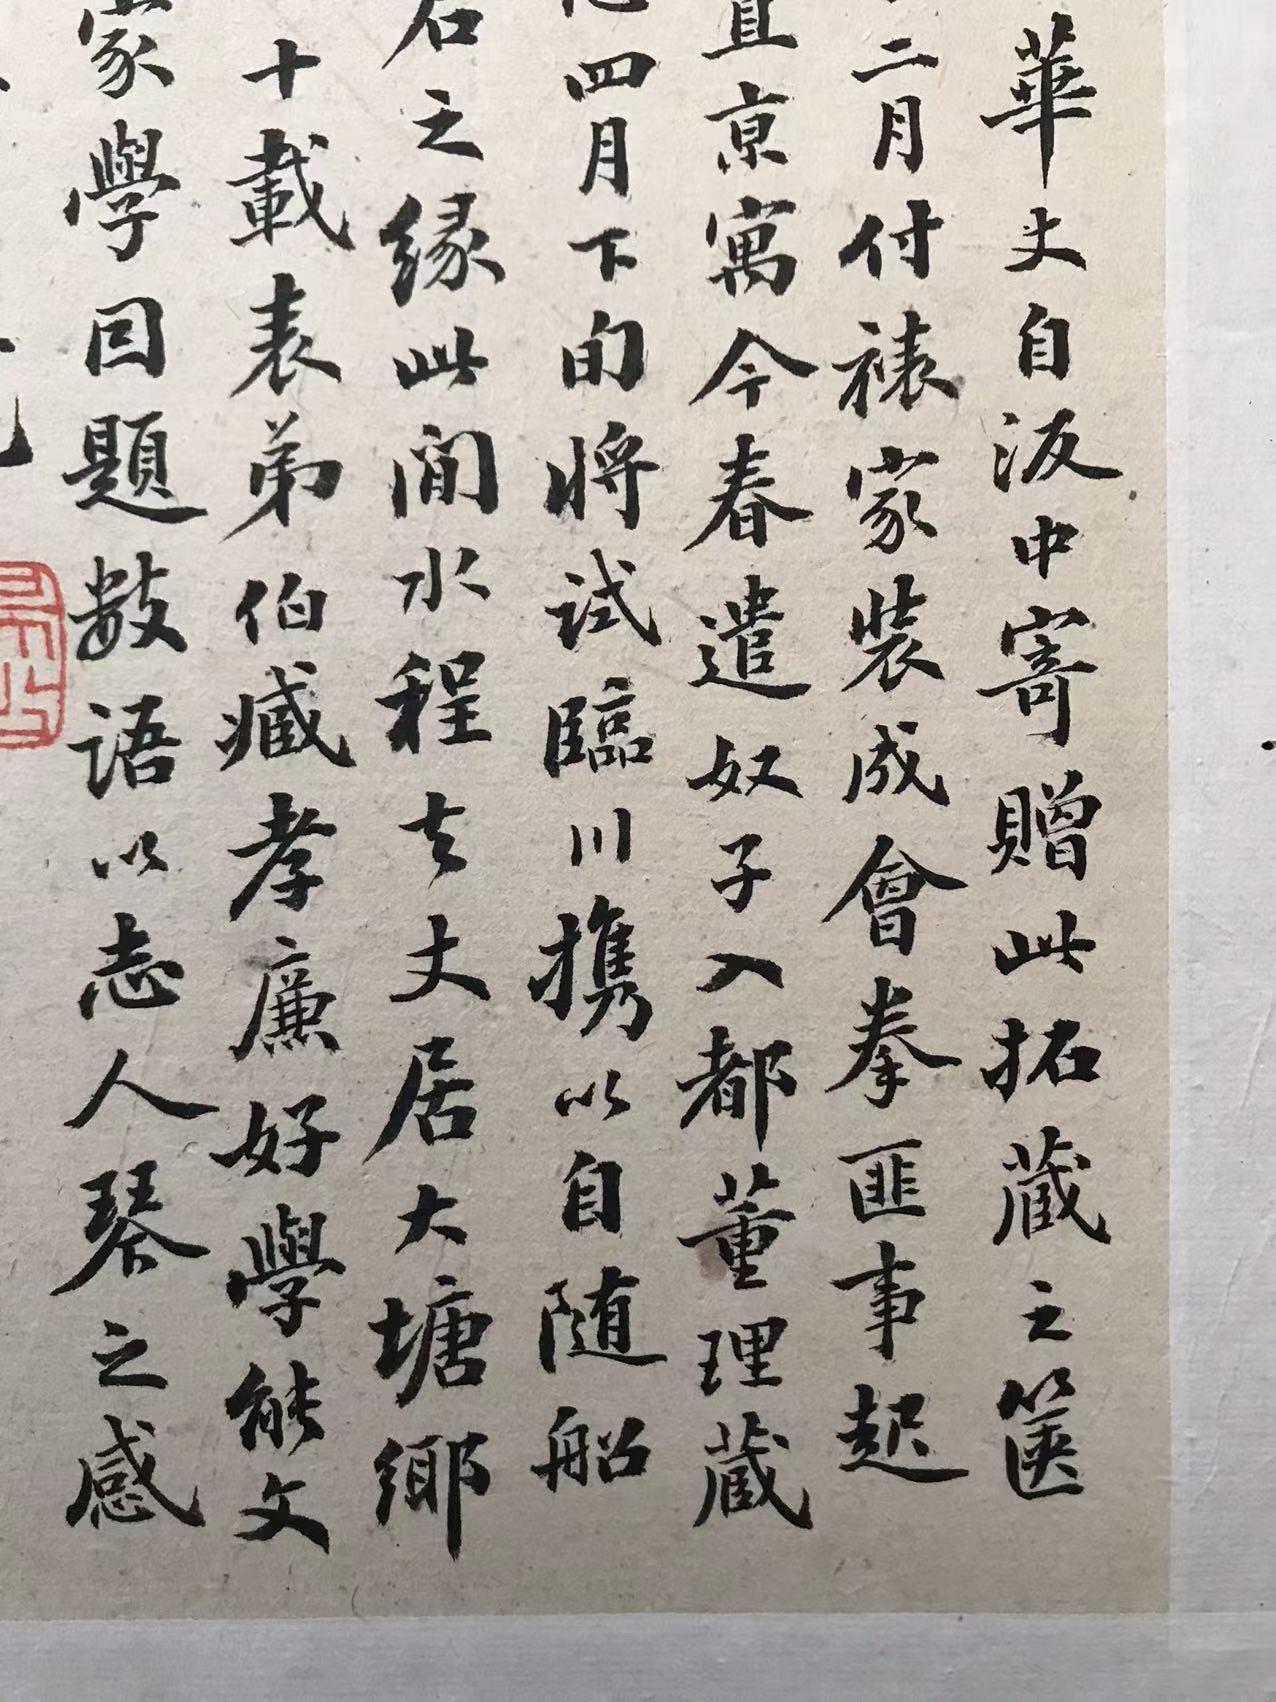 華丈自汳中寄贈此拓藏之篋
二月付裱家裝成會拳匪事起
京寓今春遣奴子入都董理藏
四月下旬將試臨川攜以自随船
之緣此間水程去丈居大塘鄉
十載表弟伯臧孝廉好學能文
家學因題數語以志人琴之感